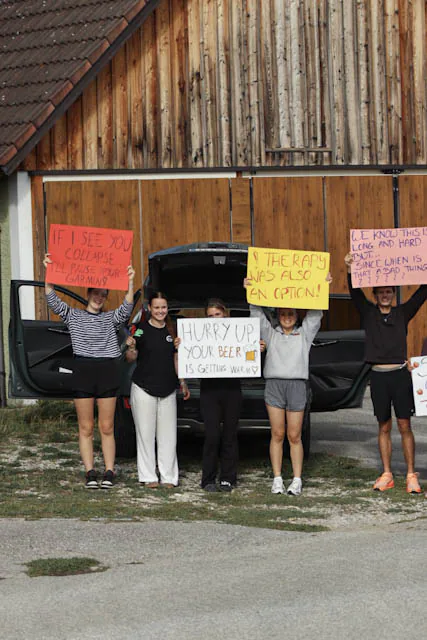 IF I SEE YOU
COLLAPSE
I'LL PAUSE YOUR
GARMIN!
HURRY UP,
YOUR BEER
IS GETTING WARM
! THERAPY
WAS ALSO
AN OPTION!
WE KNOW THIS IS
LONG AND HARD
BUT...
SINCE WHEN IS
THAT A BAD THING
? ? ? ? ?